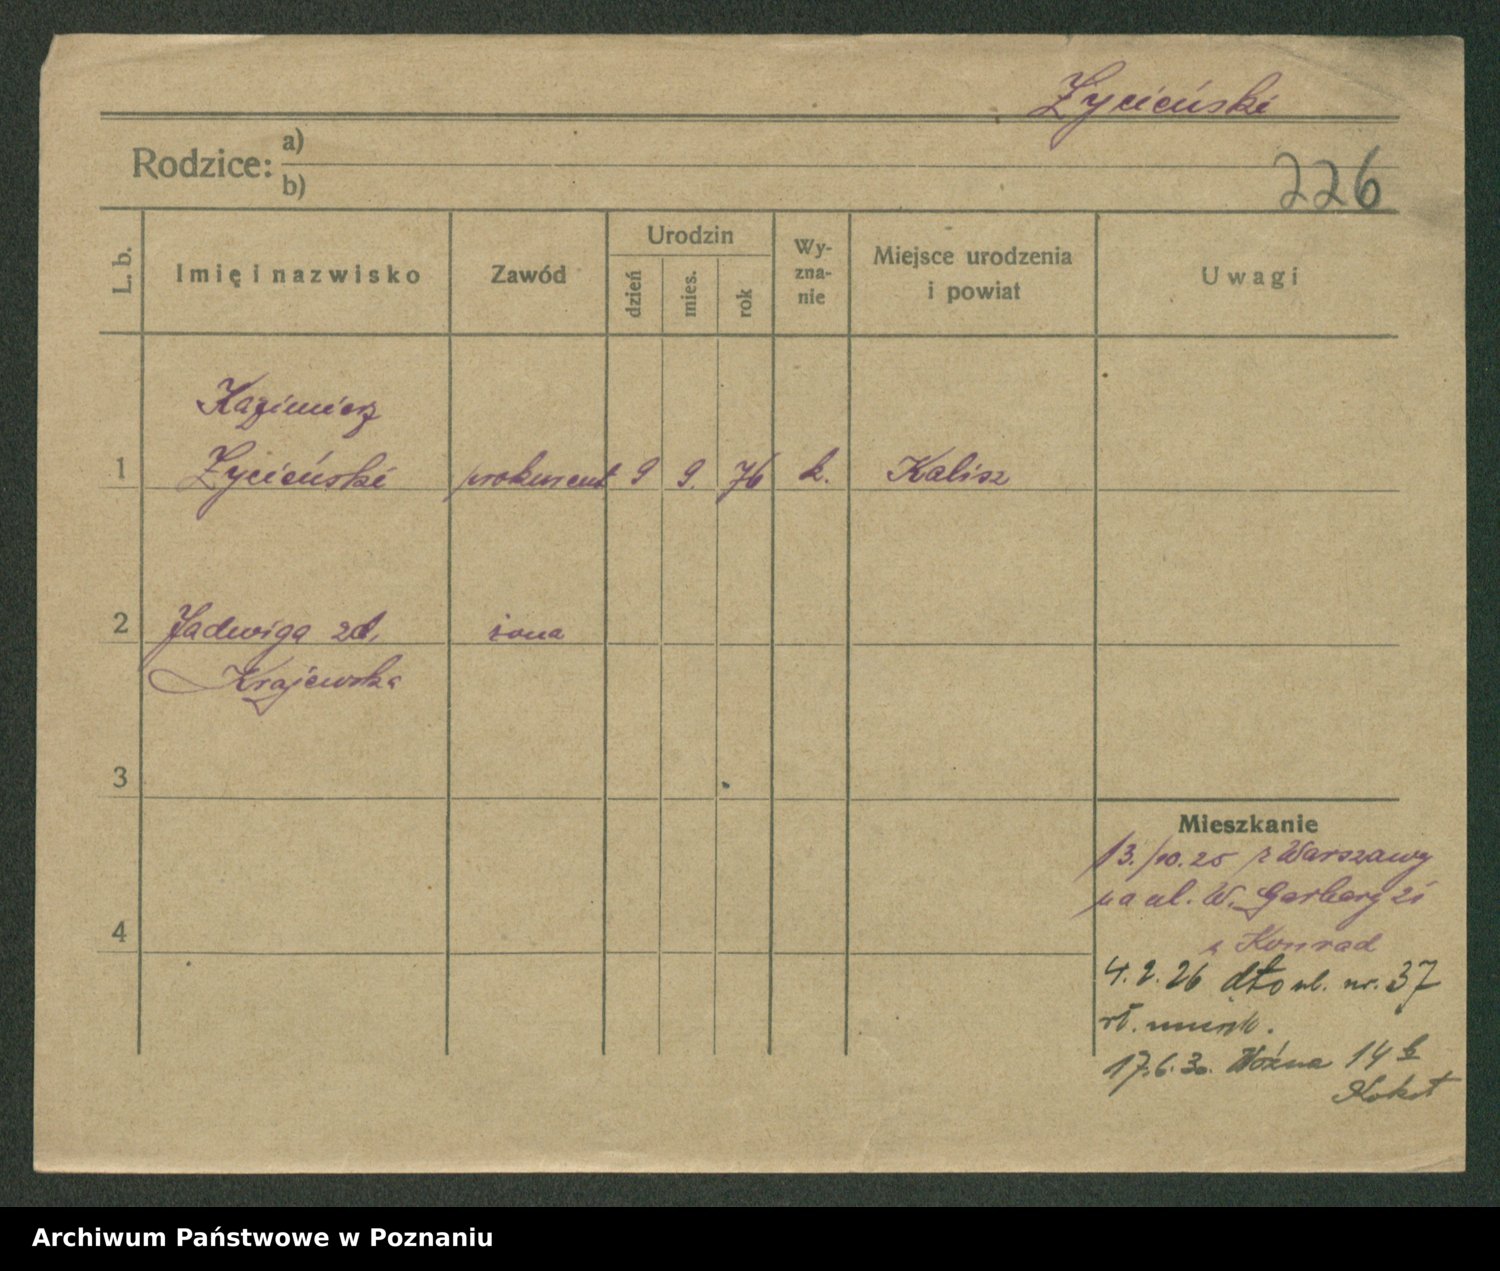 Życieński
Rodzice: a)
b)
226
L. b.
Imię i nazwisko
Zawód
Urodzin
dzień
mies.
rok
Wy-
zna-
nie
Miejsce urodzenia
i powiat
Uwagi
Kazimierz
1 Życieński prokurent 9 9. 76 k. Kalisz
2 Jadwiga zd. żona
Krajewska
3
Mieszkanie
13./10.25 z Warszawy
na ul. W. Garbary 21
Konrad
4
4.2.26 dto ul. nr. 37
wł.
17.6.30. Woźna 14